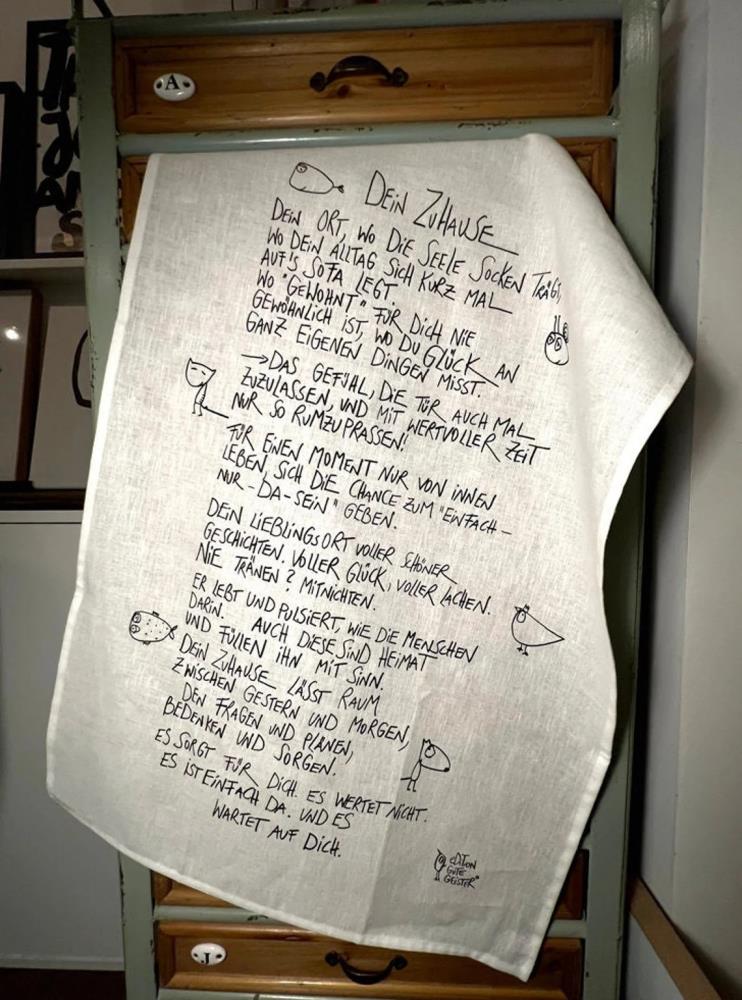 A
DEIN ZUHAUSE
DEIN ORT, WO DIE SEELE SOCKEN TRÄGT,
WO DEIN ALLTAG SICH KURZ MAL
AUF'S SOFA LEGT.
WO "GEWOHNT" FÜR DICH NIE
GEWÖHNLICH IST, WO DU GLÜCK AN
GANZ EIGENEN DINGEN MISST.
→DAS GEFÜHL, DIE TÜR AUCH MAL
ZUZULASSEN, UND MIT WERTVOLLER ZEIT
NUR SO RUMZUPRASSEN!
FÜR EINEN MOMENT NUR VON INNEN
LEBEN, SICH DIE CHANCE ZUM "EINFACH-
NUR-DA-SEIN" GEBEN.
DEIN LIEBLINGSORT VOLLER SCHÖNER
GESCHICHTEN. VOLLER GLÜCK, VOLLER LACHEN.
NIE TRÄNEN? MITNICHTEN.
ER LEBT UND PULSIERT, WIE DIE MENSCHEN
DARIN. AUCH DIESE SIND HEIMAT
UND FÜLLEN IHN MIT SINN.
DEIN ZUHAUSE LÄSST RAUM
ZWISCHEN GESTERN UND MORGEN,
DEN FRAGEN UND PLÄNEN,
BEDENKEN UND SORGEN.
ES SORGT FÜR DICH. ES WERTET NICHT.
ES IST EINFACH DA. UND ES
WARTET AUF DICH.
EDITION
GUTE
GEISTER
J